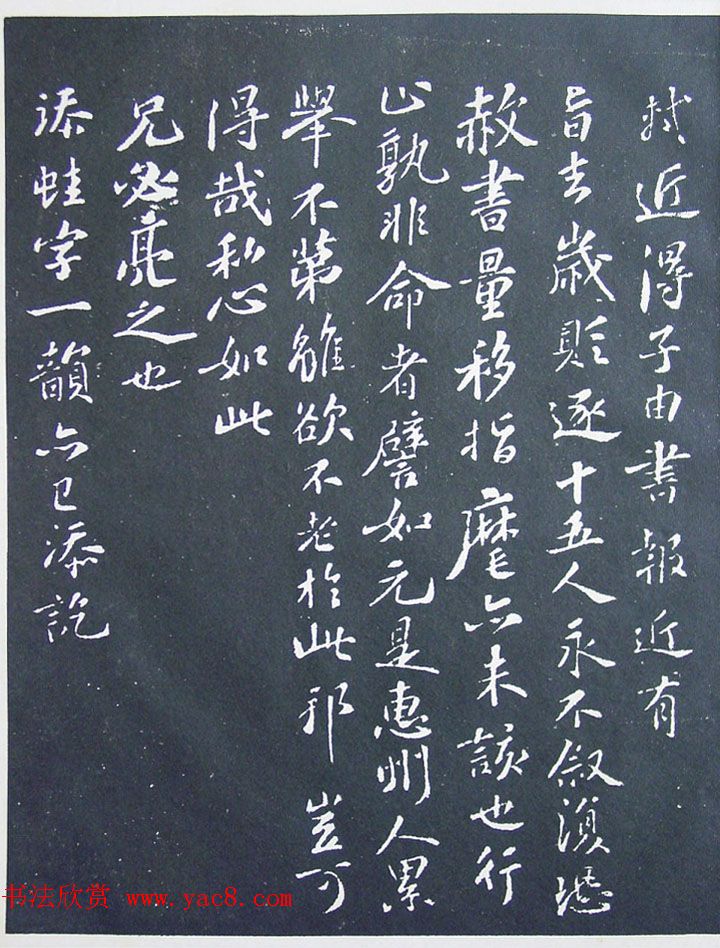 軾近得子由書報近有
旨去歲貶逐十五人永不敘復恐
赦書量移指麾亦未該也行
止孰非命者譬如元是惠州人累
舉不第雖欲不老於此邪豈可
得哉私心如此
兄必亮之也
添蛙字一韻亦已添訖
书法欣赏 www.yac8.com